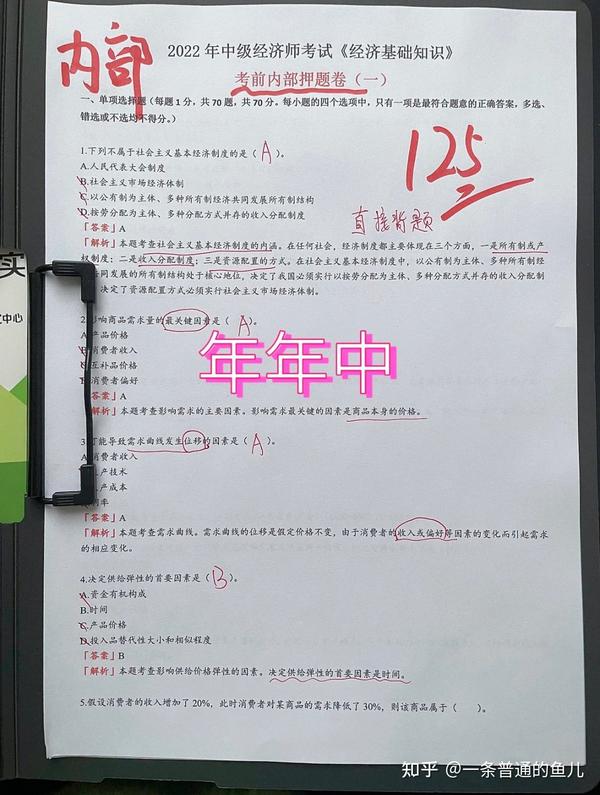 内部
2022年中级经济师考试《经济基础知识》
考前内部押题卷（一）
一、单项选择题（每题1分，共70题，共70分。每小题的四个选项中，只有一项是最符合题意的正确答案，多选、
错选或不选均不得分。）
125
1.下列不属于社会主义基本经济制度的是（ A ）。
A.人民代表大会制度
B.社会主义市场经济体制
C.以公有制为主体、多种所有制经济共同发展所有制结构
D.按劳分配为主体、多种分配方式并存的收入分配制度
直接背题
「答案」A
「解析」本题考查社会主义基本经济制度的内涵。在任何社会，经济制度都主要体现在三个方面，一是所有制或产
权制度；二是收入分配制度；三是资源配置的方式。在社会主义基本经济制度中，以公有制为主体、多种所有制经
同发展的所有制结构处于核心地位，决定了我国必须实行以按劳分配为主体、多种分配方式并存的收入分配制
决定了资源配置方式必须实行社会主义市场经济体制。
卖
中心
2.影响商品需求量的最关键因素是（ A ）。
A.产品价格
B.消费者收入
互补品价格
消费者偏好
年年中
答案」A
解析」本题考查影响需求的主要因素。影响需求最关键的因素是商品本身的价格。
3.可能导致需求曲线发生位移的因素是（ A ）。
A.消费者收入
产技术
产成本
利率
「答案」A
「解析」本题考查需求曲线。需求曲线的位移是假定价格不变，由于消费者的收入或偏好等因素的变化而引起需求
的相应变化。
4.决定供给弹性的首要因素是（ B ）。
A.资金有机构成
B.时间
C.产品价格
D.投入品替代性大小和相似程度
「答案」B
「解析」本题考查影响供给价格弹性的因素。决定供给弹性的首要因素是时间。
5.假设消费者的收入增加了20%，此时消费者对某商品的需求降低了30%，则该商品属于（ ）。
知乎 @一条普通的鱼儿